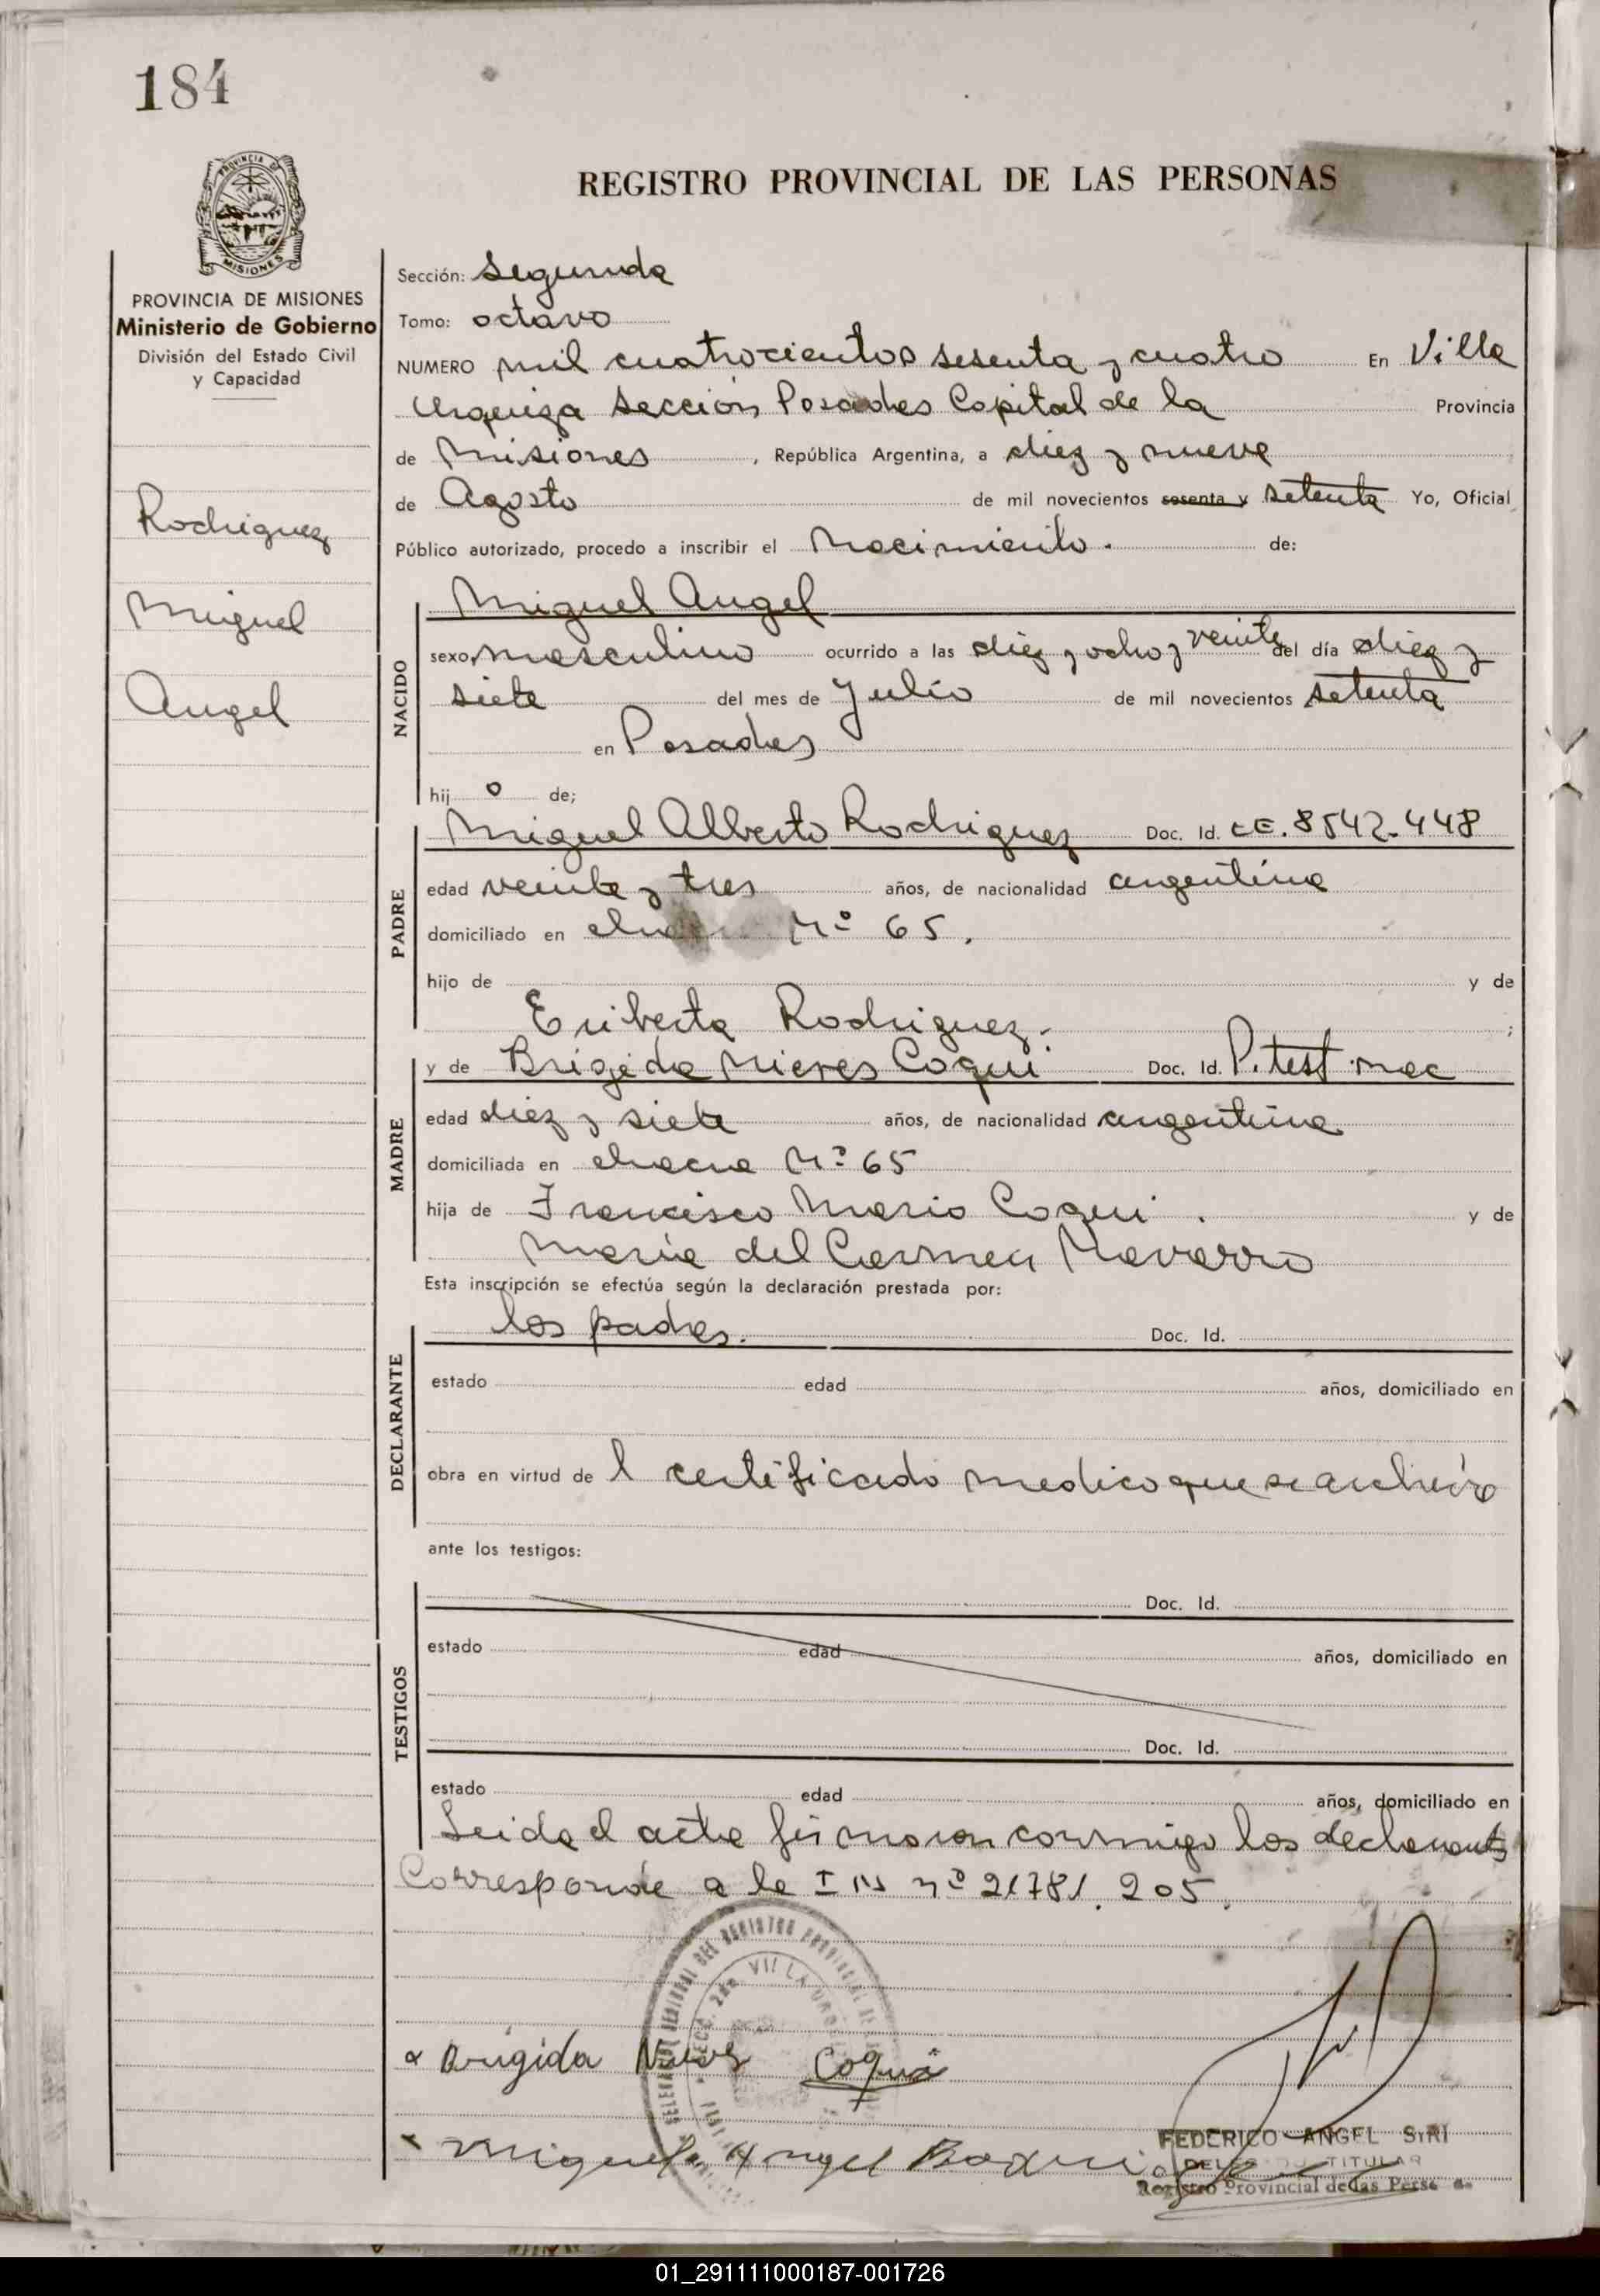 184
PROVINCIA DE
MISIONES
REGISTRO PROVINCIAL DE LAS PERSONAS
PROVINCIA DE MISIONES
Ministerio de Gobierno
División del Estado Civil
y Capacidad
Rodriguez
Miguel
Angel
Sección: Segunda
Tomo: octavo
NUMERO mil cuatrocientos sesenta y cuatro En Villa
Urquiza Sección Posadas Capital de la Provincia
de Misiones, República Argentina, a diez y nueve
de Agosto de mil novecientos sesenta y setenta Yo, Oficial
Público autorizado, procedo a inscribir el Nacimiento. de:
NACIDO
Miguel Angel
sexo masculino ocurrido a las diez y ocho y veinte del día diez y
siete del mes de Julio de mil novecientos setenta
en Posadas
hij o de;
PADRE
Miguel Alberto Rodriguez Doc. Id. CE. 8542.448
edad veinte y tres años, de nacionalidad argentina
domiciliado en Nº 65.
hijo de y de
Eriberta Rodriguez. ;
MADRE
y de Brigida Nieves Coqui Doc. Id. P. test nac
edad diez y siete años, de nacionalidad argentina
domiciliada en chacra Nº 65
hija de Francisco Mario Coqui. y de
Maria del Carmen Navarro
Esta inscripción se efectúa según la declaración prestada por:
DECLARANTE
los padres. Doc. Id.
estado edad años, domiciliado en
obra en virtud de l certificado medico que se archiva
ante los testigos:
TESTIGOS
Doc. Id.
estado edad años, domiciliado en
Doc. Id.
estado edad años, domiciliado en
Leida el acta firmaron conmigo los declarantes
Corresponde a la I M nº 21781.205.
Brigida Nieves Coqui
Miguel Angel Rodriguez
FEDERICO ANGEL SIRI
TITULAR
Registro Provincial de las Perso as
01_291111000187-001726